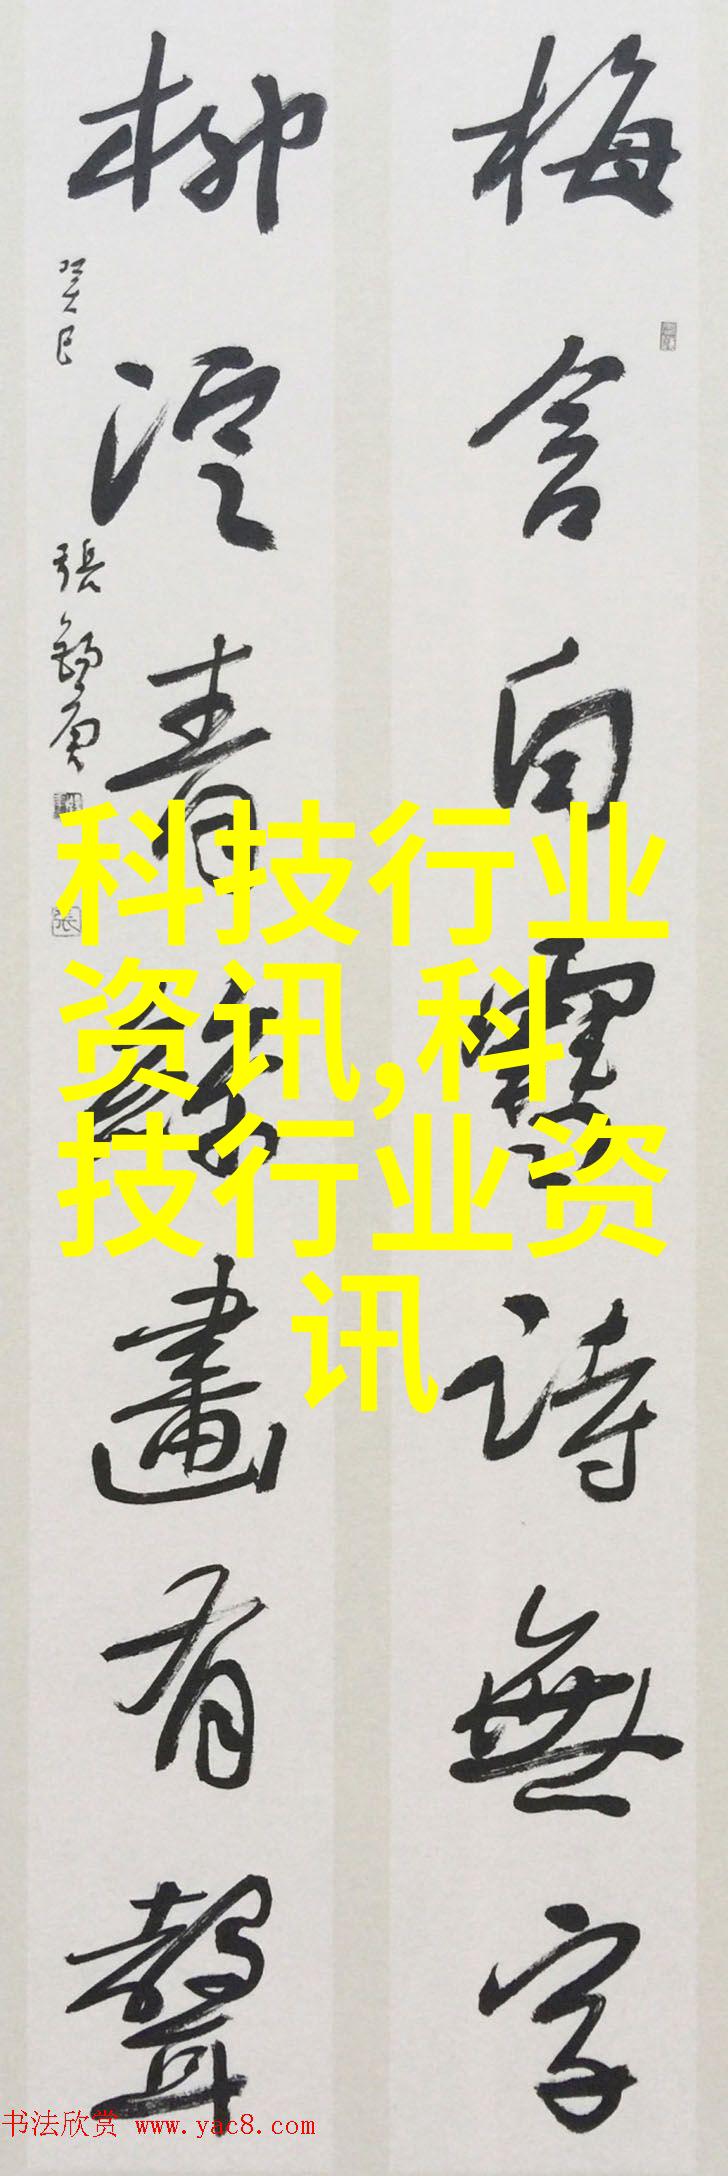 梅含白雪詩無字
柳浥青絲畫有聲
癸巳
張錫庚
張
科技行业
资讯,科
技行业资
讯
书法欣赏 www.yac8.com